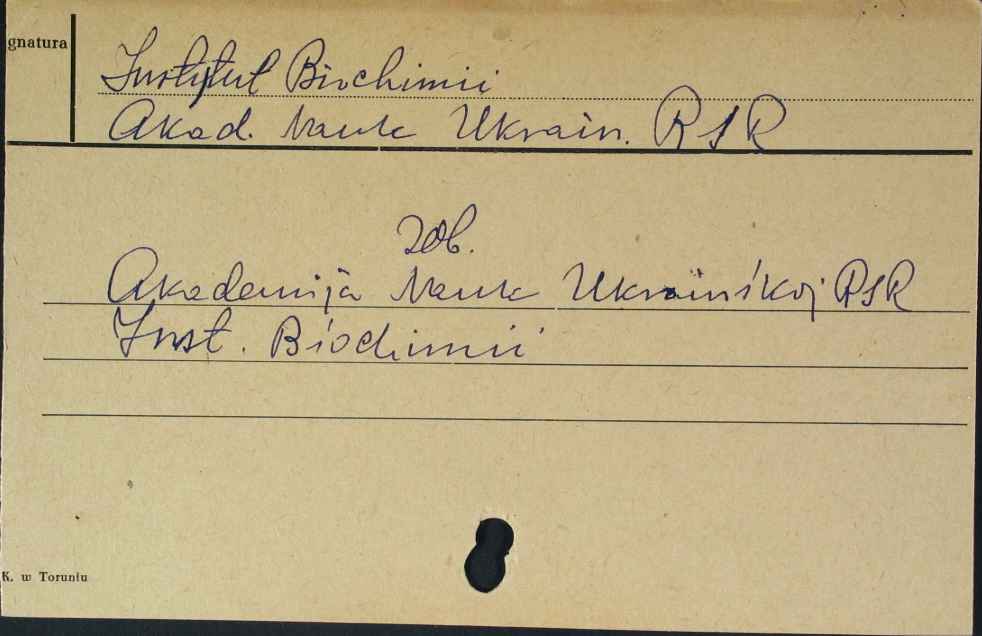 gnatura
Instytut Biochimii
Akad. Nauk Ukrain. RSR
zob.
Akademija Nauk Ukraïnśkoj RSR
Inst. Biochimii
K. w Toruniu